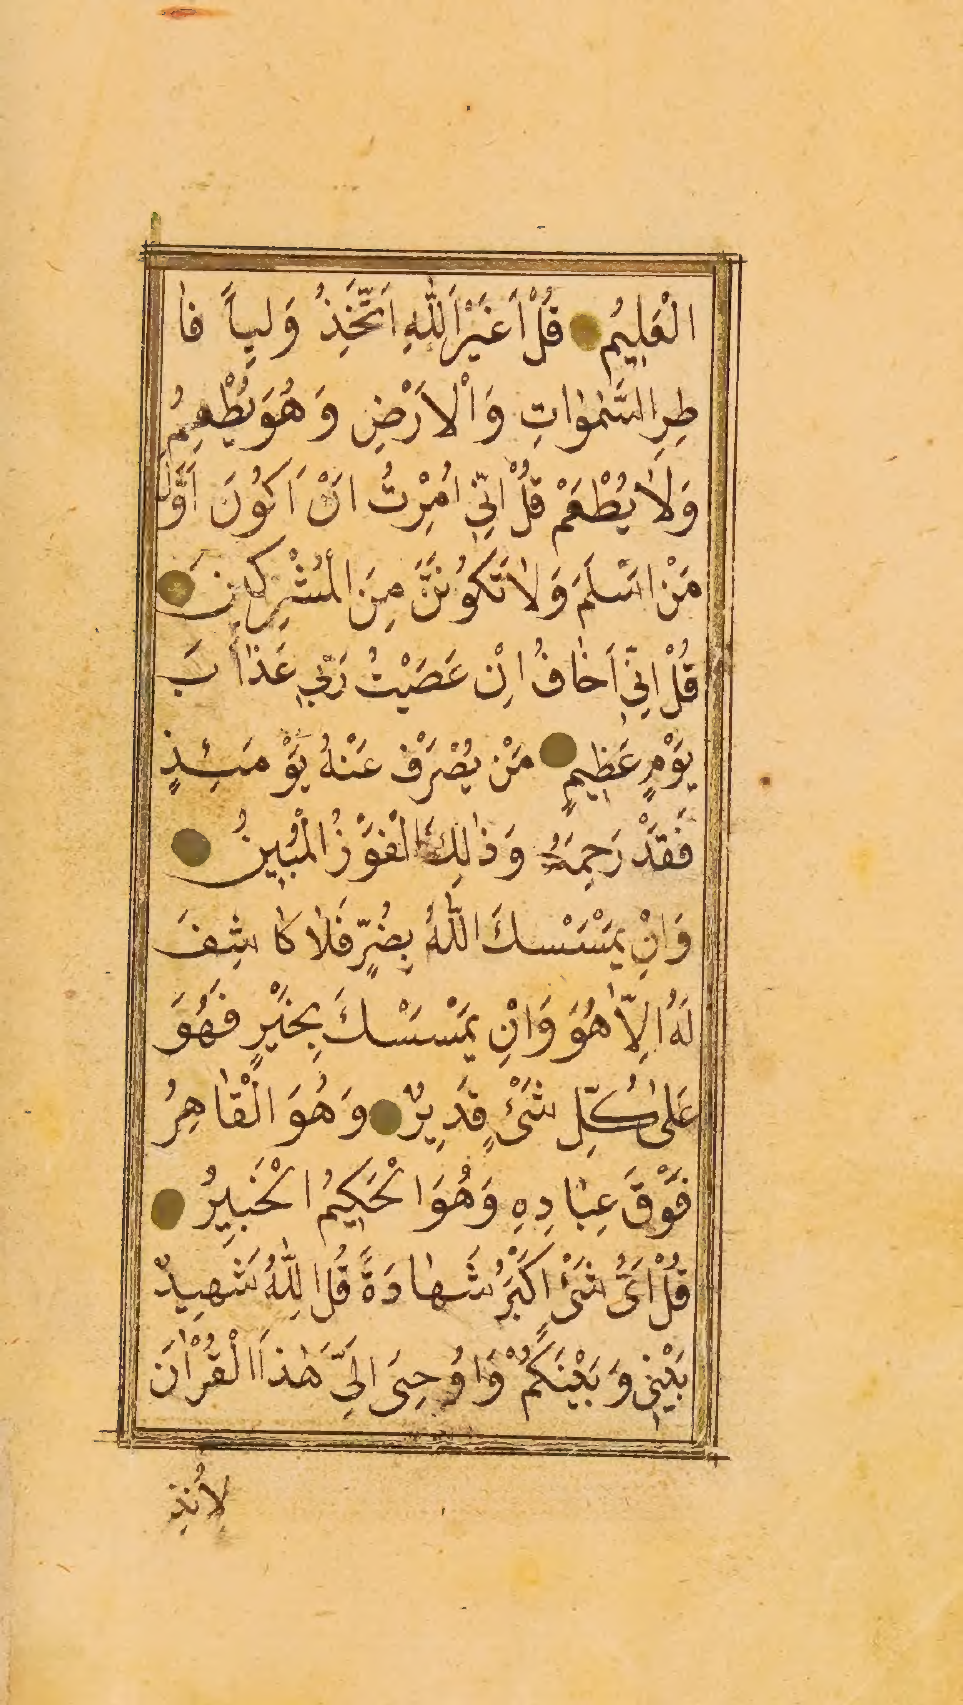 الْعَلِيمُ قُلْ اَغَيْرَ اَللّٰهِ اَتَّخِذُ وَلِياًّ فَا
طِرِ السَّمٰوٰاتِ وَاْلاَرْضِ وَهُوَ يُطْعِمُ
وَلاٰ يُطْعَمُ قُلْ اِنّىِ اُمِرْتُ اَنْ اَكُونَ اَوَّلَ
مَنْ اَسْلَمَ وَلاٰ تَكُونَنَّ مِنَ الْمُشْرِكِينَ
قُلْ اِنّىِ اَخٰافُ اِنْ عَصَيْتُ رَبّىِ عَذٰابَ
يَوْمٍ عَظِيمٍ مَنْ يُصْرَفْ عَنْهُ يَوْمَئِذٍ
فَقَدْ رَحِمَهُ وَذٰلِكَ الْفَوْزُ الْمُبِينُ
وَاِنْ يَمْسَسْكَ اللّٰهُ بِضُرٍّ فَلاٰ كٰاشِفَ
لَهُ اِلاّٰ هُوَ وَاِنْ يَمْسَسْكَ بِخَيْرٍ فَهُوَ
عَلىٰ كُلِّ شَىْءٍ قَدِيرٌ وَهُوَ الْقٰاهِرُ
فَوْقَ عِبٰادِهِ وَهُوَ الْحَكِيمُ الْخَبِيرُ
قُلْ اَىُّ شَىْءٍ اَكْبَرُ شَهٰادَةً قُلِ اللّٰهُ شَهِيدٌ
بَيْنىِ وَبَيْنَكُمْ وَاُوحِىَ اِلَىَّ هٰذَا الْقُرْاٰنَ
لِاُنْذِ